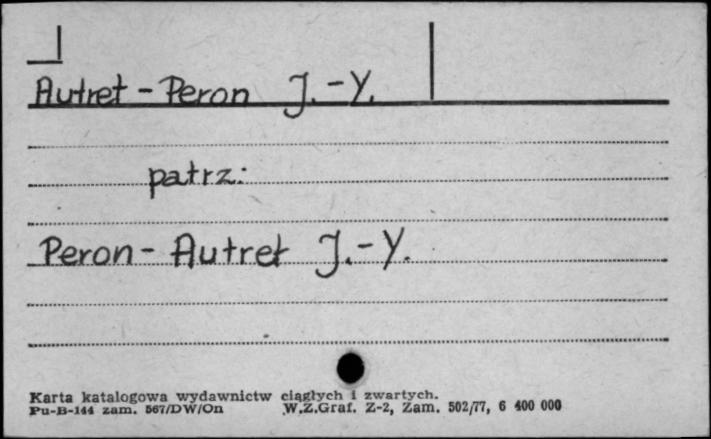 Autret-Peron J.-Y.
patrz:
Peron-Autret J.-Y.
Karta katalogowa wydawnictw ciągłych i zwartych.
Pu-B-144 zam. 567/DW/On W.Z.Graf. Z-2, Zam. 502/77, 6 400 000